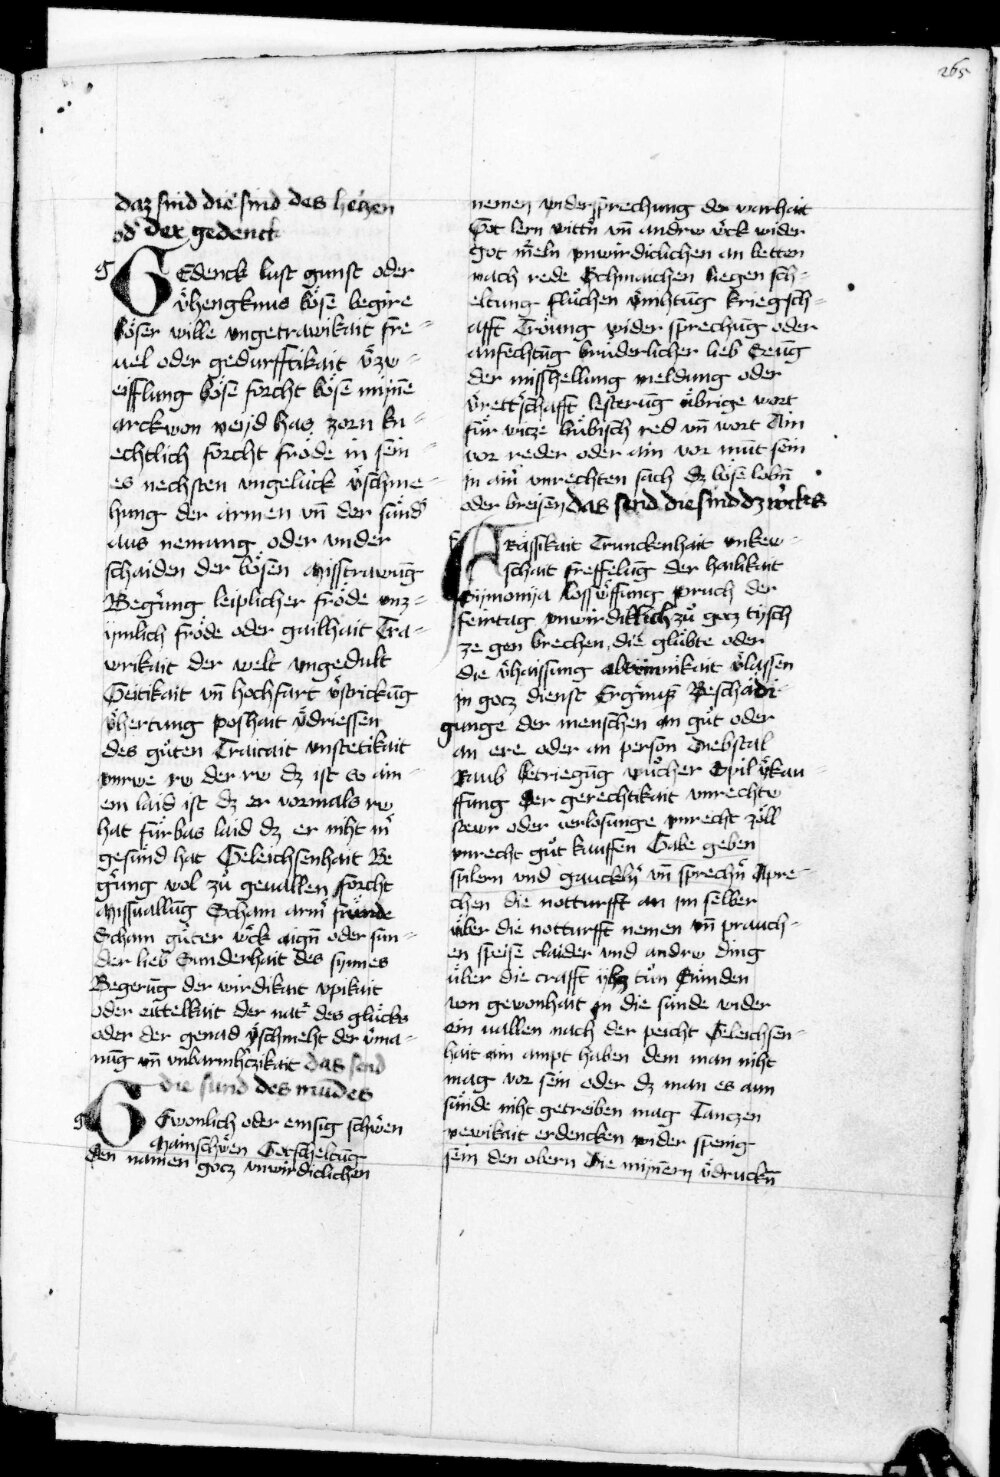 265
daz sind die sind des heczen
od der gedenck
g GEdenck lust gunst oder
v̈hengknus böse begire
böser wille vngetrawikait fre=
uel oder gedurfftikait v̈zw=
eifflung böse forcht böse mynne
arckwon neyd has zorn kn=
echtlich forcht fröde in sein=
es nechsten vngelück v̈schme=
hung der armen vn̄ der sünd
aus nemung oder vnder
schaiden der bösen Misstrawūg
Begirung leiplicher fröde vnz=
ymlich fröde oder gailhait Tra=
wrikait der welt vngedult
Geitikait vn̄ hochfart v̈strickūg
v̈hertung poshait v̈driessen
des guten Tracait vnstetikait
vnrwe rw der rw dz ist so ain=
em laid ist dz er vormals rw
hat fürbas laid dz er niht mer
gesünd hat Geleichsenhait Be
girung wol zu geuallen forcht
Missuallūg Scham armer fründe
Scham guter wöck aigen oder sun=
der lieb Sunderhait des synnes
Begerūg der wirdikait vpikait
oder eittelkait der natur des glücks
oder der genad v̈schmeht der v̈ma=
nūg vn̄ vnbarmhczikait das send
die sund des mundes
g GEwonlich oder emsig schweren
Mainschweren Gotscheltūg
den namen gocz vnwirdiclichen
nemen widersprechung der warhait
Got lern bitten vn̄ andrw wöck wider
got vnwirdiclichen an betten
nach rede Schmaichen liegen sch=
eltung flüchen kriegsch=
afft Tröung wider sprechūg oder
anfechtūg brüderlicher lieb
der misshellung meldung oder
v̈rettschafft lesterūg übrige wort
für wicze bübisch red vn̄ wort Ain
vor reder oder ain vor münt sein
in ainer vnrechten sach dz böse loben
oder breisen das send die sind dz wöckes
Frässikait Trunckenhait vnkew=
schait freffelūg der hailikait
Symonya pruch der
feirtag vnwirdiklich zu gocz tysch
ze gen brechen die glübte oder
die v̈haissung v̈lassen
in gocz dienst Ergernus Beschädi=
gunge der menschen an gut oder
an ere oder an person Diebstal
Raub betriegūg wucher Spil v̈kau=
ffung der gerechtikait vnrechtw
stewr oder verlosunge vnrecht zöll
vnrecht gut kauffen Gabe geben
spilern vnd gaucklern vn̄ sprechern Apre=
chen die notturfft an im selber
über die notturfft nemen vn̄ prauch=
en speise claider vnd andrw ding
über die crafft tun Sünden
von gewonhait in die sünde wider
ein uallen nach der peicht Geleichsen=
hait ain ampt haben dem man niht
mag vor sein oder dz man es ann
sünde niht getreiben mag Tanczen
newikait erdencken wider spenig
sein den obern Die mynern v̈drucken